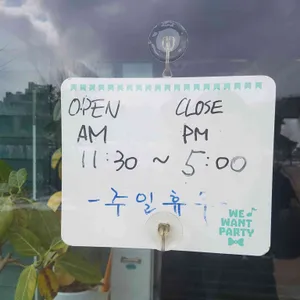 OPEN CLOSE
AM PM
11:30 ~ 5:00
-주일휴무-
WE
WANT
PARTY